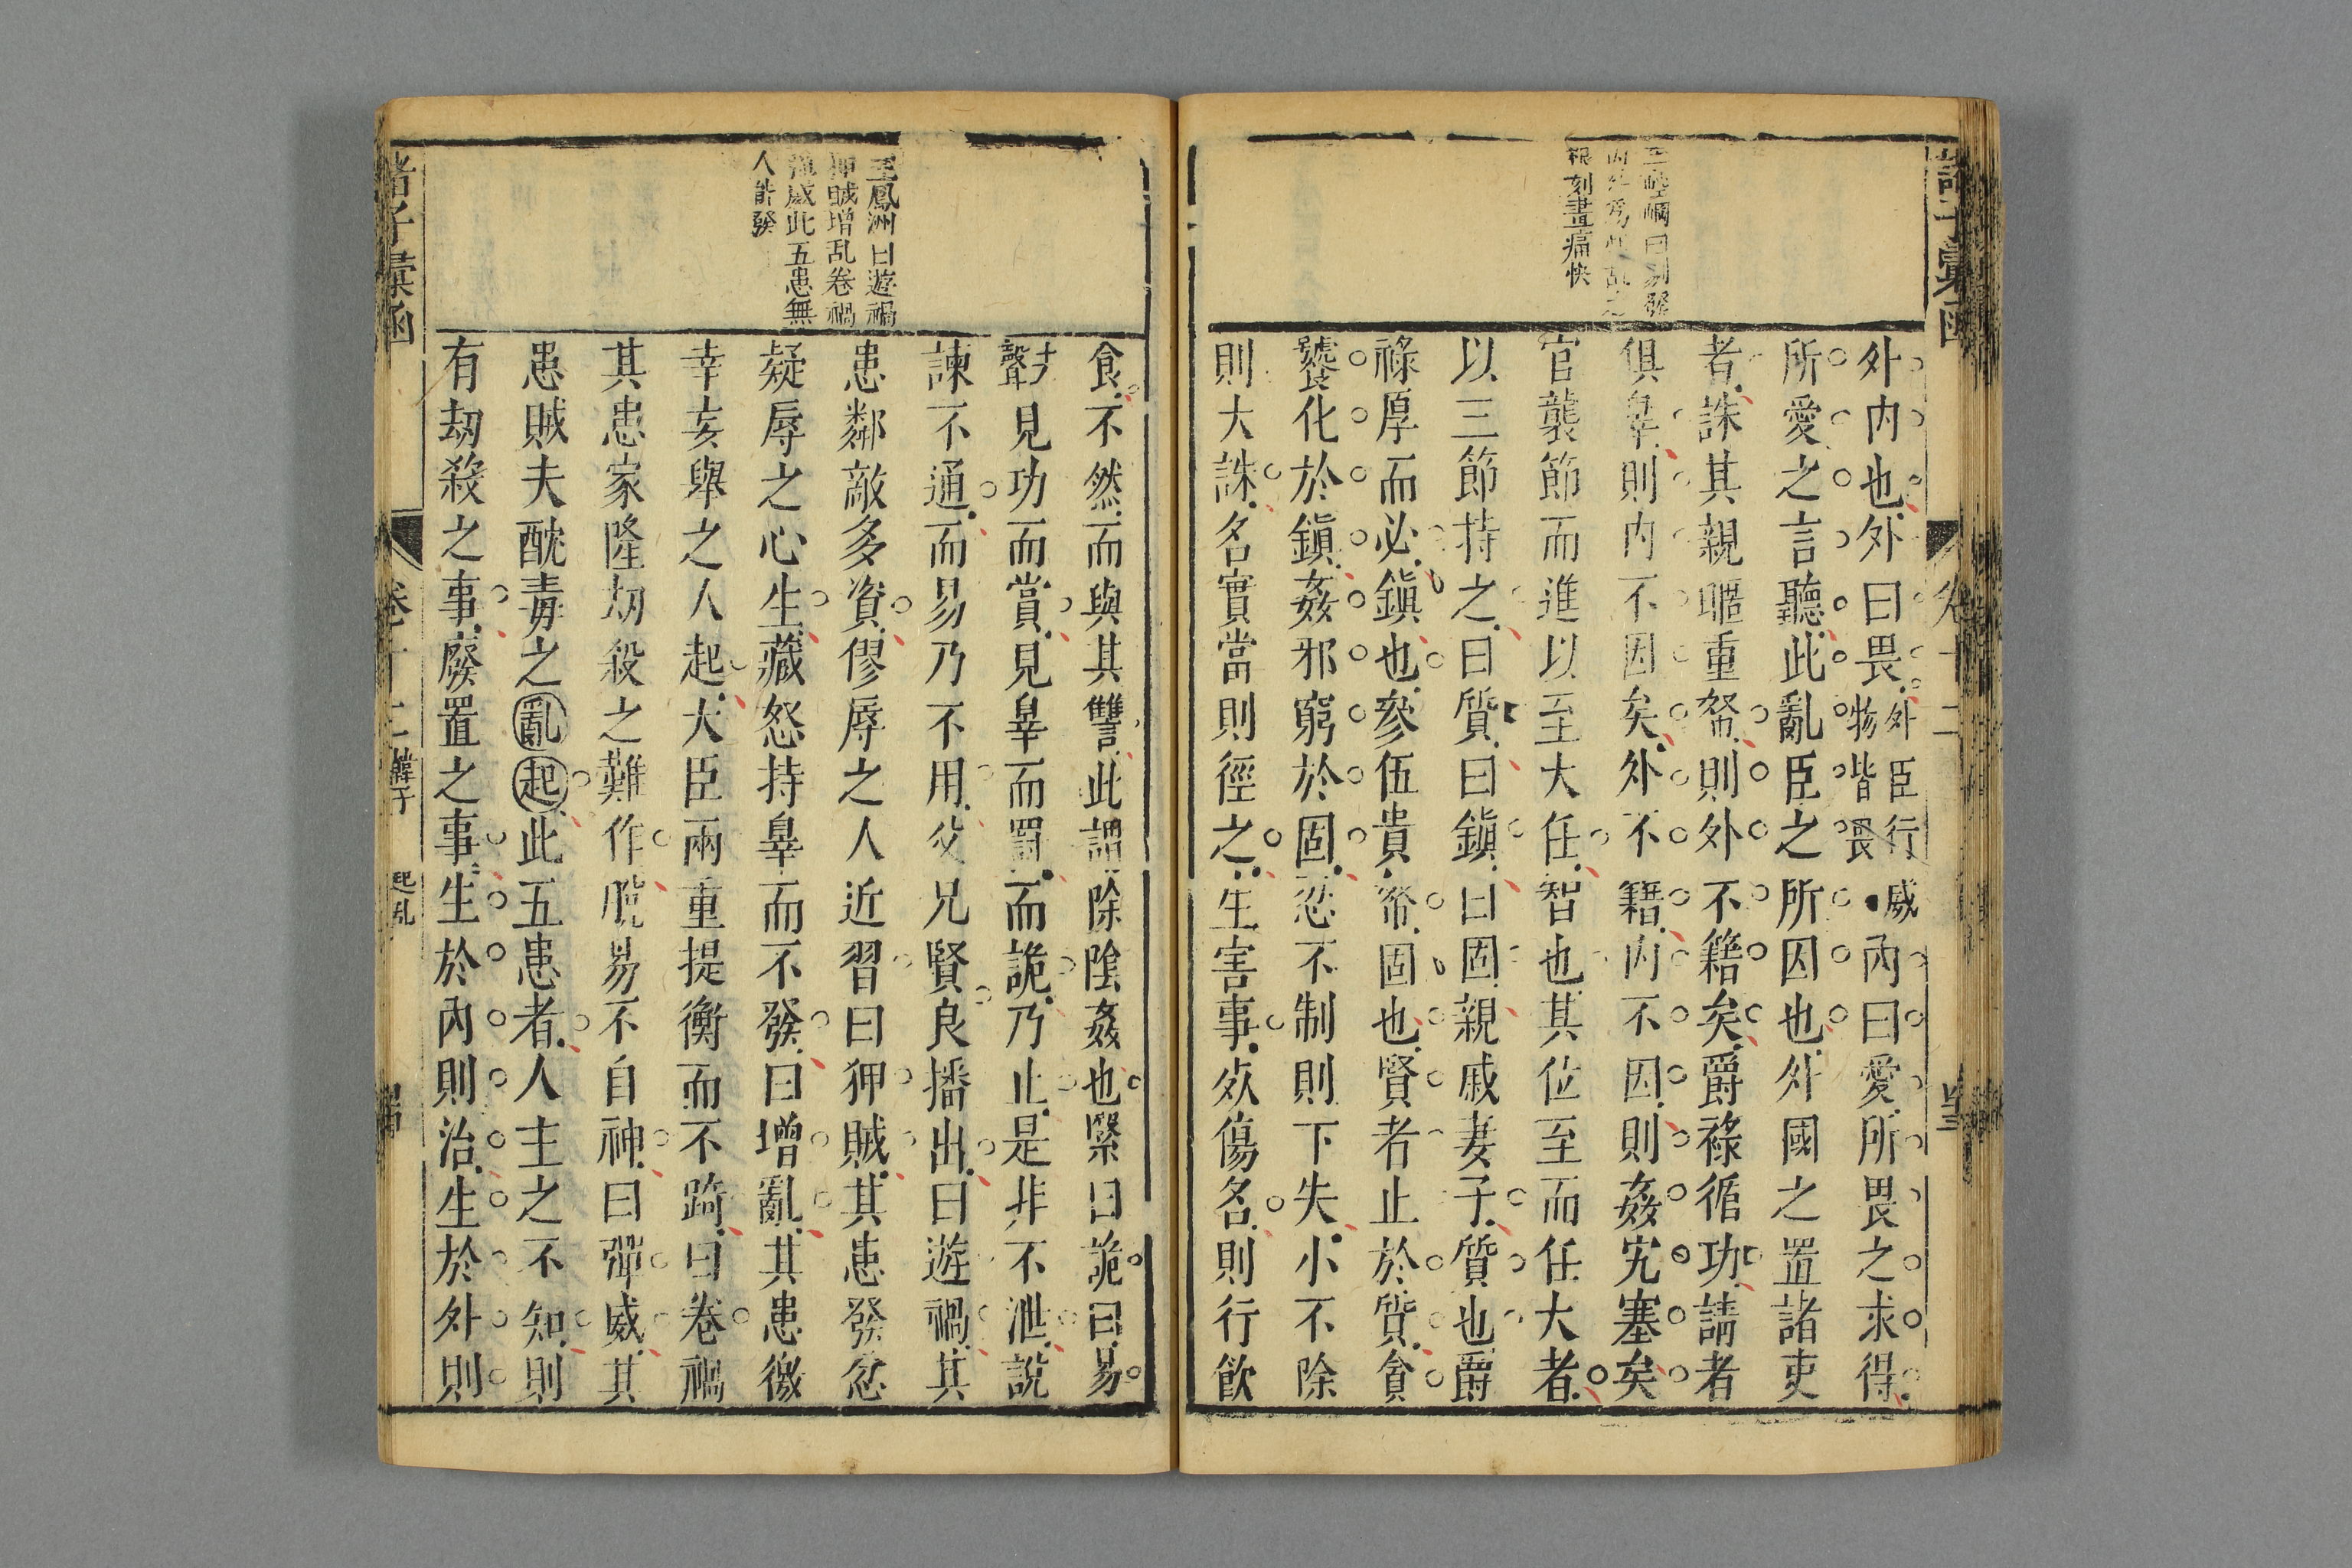 諸子彙函
卷十二
外內也外曰畏外臣行威物皆畏內曰愛所畏之求得
所愛之言聽此亂臣之所因也外國之置諸吏
者誅其親暱重帑則外不籍矣爵祿循功請者
俱辠則內不因矣外不籍內不因則姦宄塞矣
官襲節而進以至大任智也其位至而任大者
以三節持之曰質曰鎭曰固親戚妻子質也爵
祿厚而必鎭也參伍貴帑固也賢者止於質貪
饕化於鎭姦邪窮於固忍不制則下失小不除
則大誅名實當則徑之生害事死傷名則行飲
根刻畫痛快
食不然而與其讐此謂除陰姦也緊曰詭曰易
見功而賞見辠而罰而詭乃止是非不泄說
諫不通而易乃不用父兄賢良播出曰遊禍其
患鄰敵多資僇辱之人近習曰狎賊其患發忿
疑辱之心生藏怒持辠而不發曰增亂其患徼
幸妄舉之人起大臣兩重提衡而不踦曰卷禍
其患家隆劫殺之難作脫易不自神曰彈威其
患賊夫酖毒之亂起此五患者人主之不知則
有劫殺之事廢置之事生於內則治生於外則
王鳳洲曰遊禍
狎賊增乱卷禍
彈威此五患無
人能發
諸子彙函
卷十二
韓子
起乱